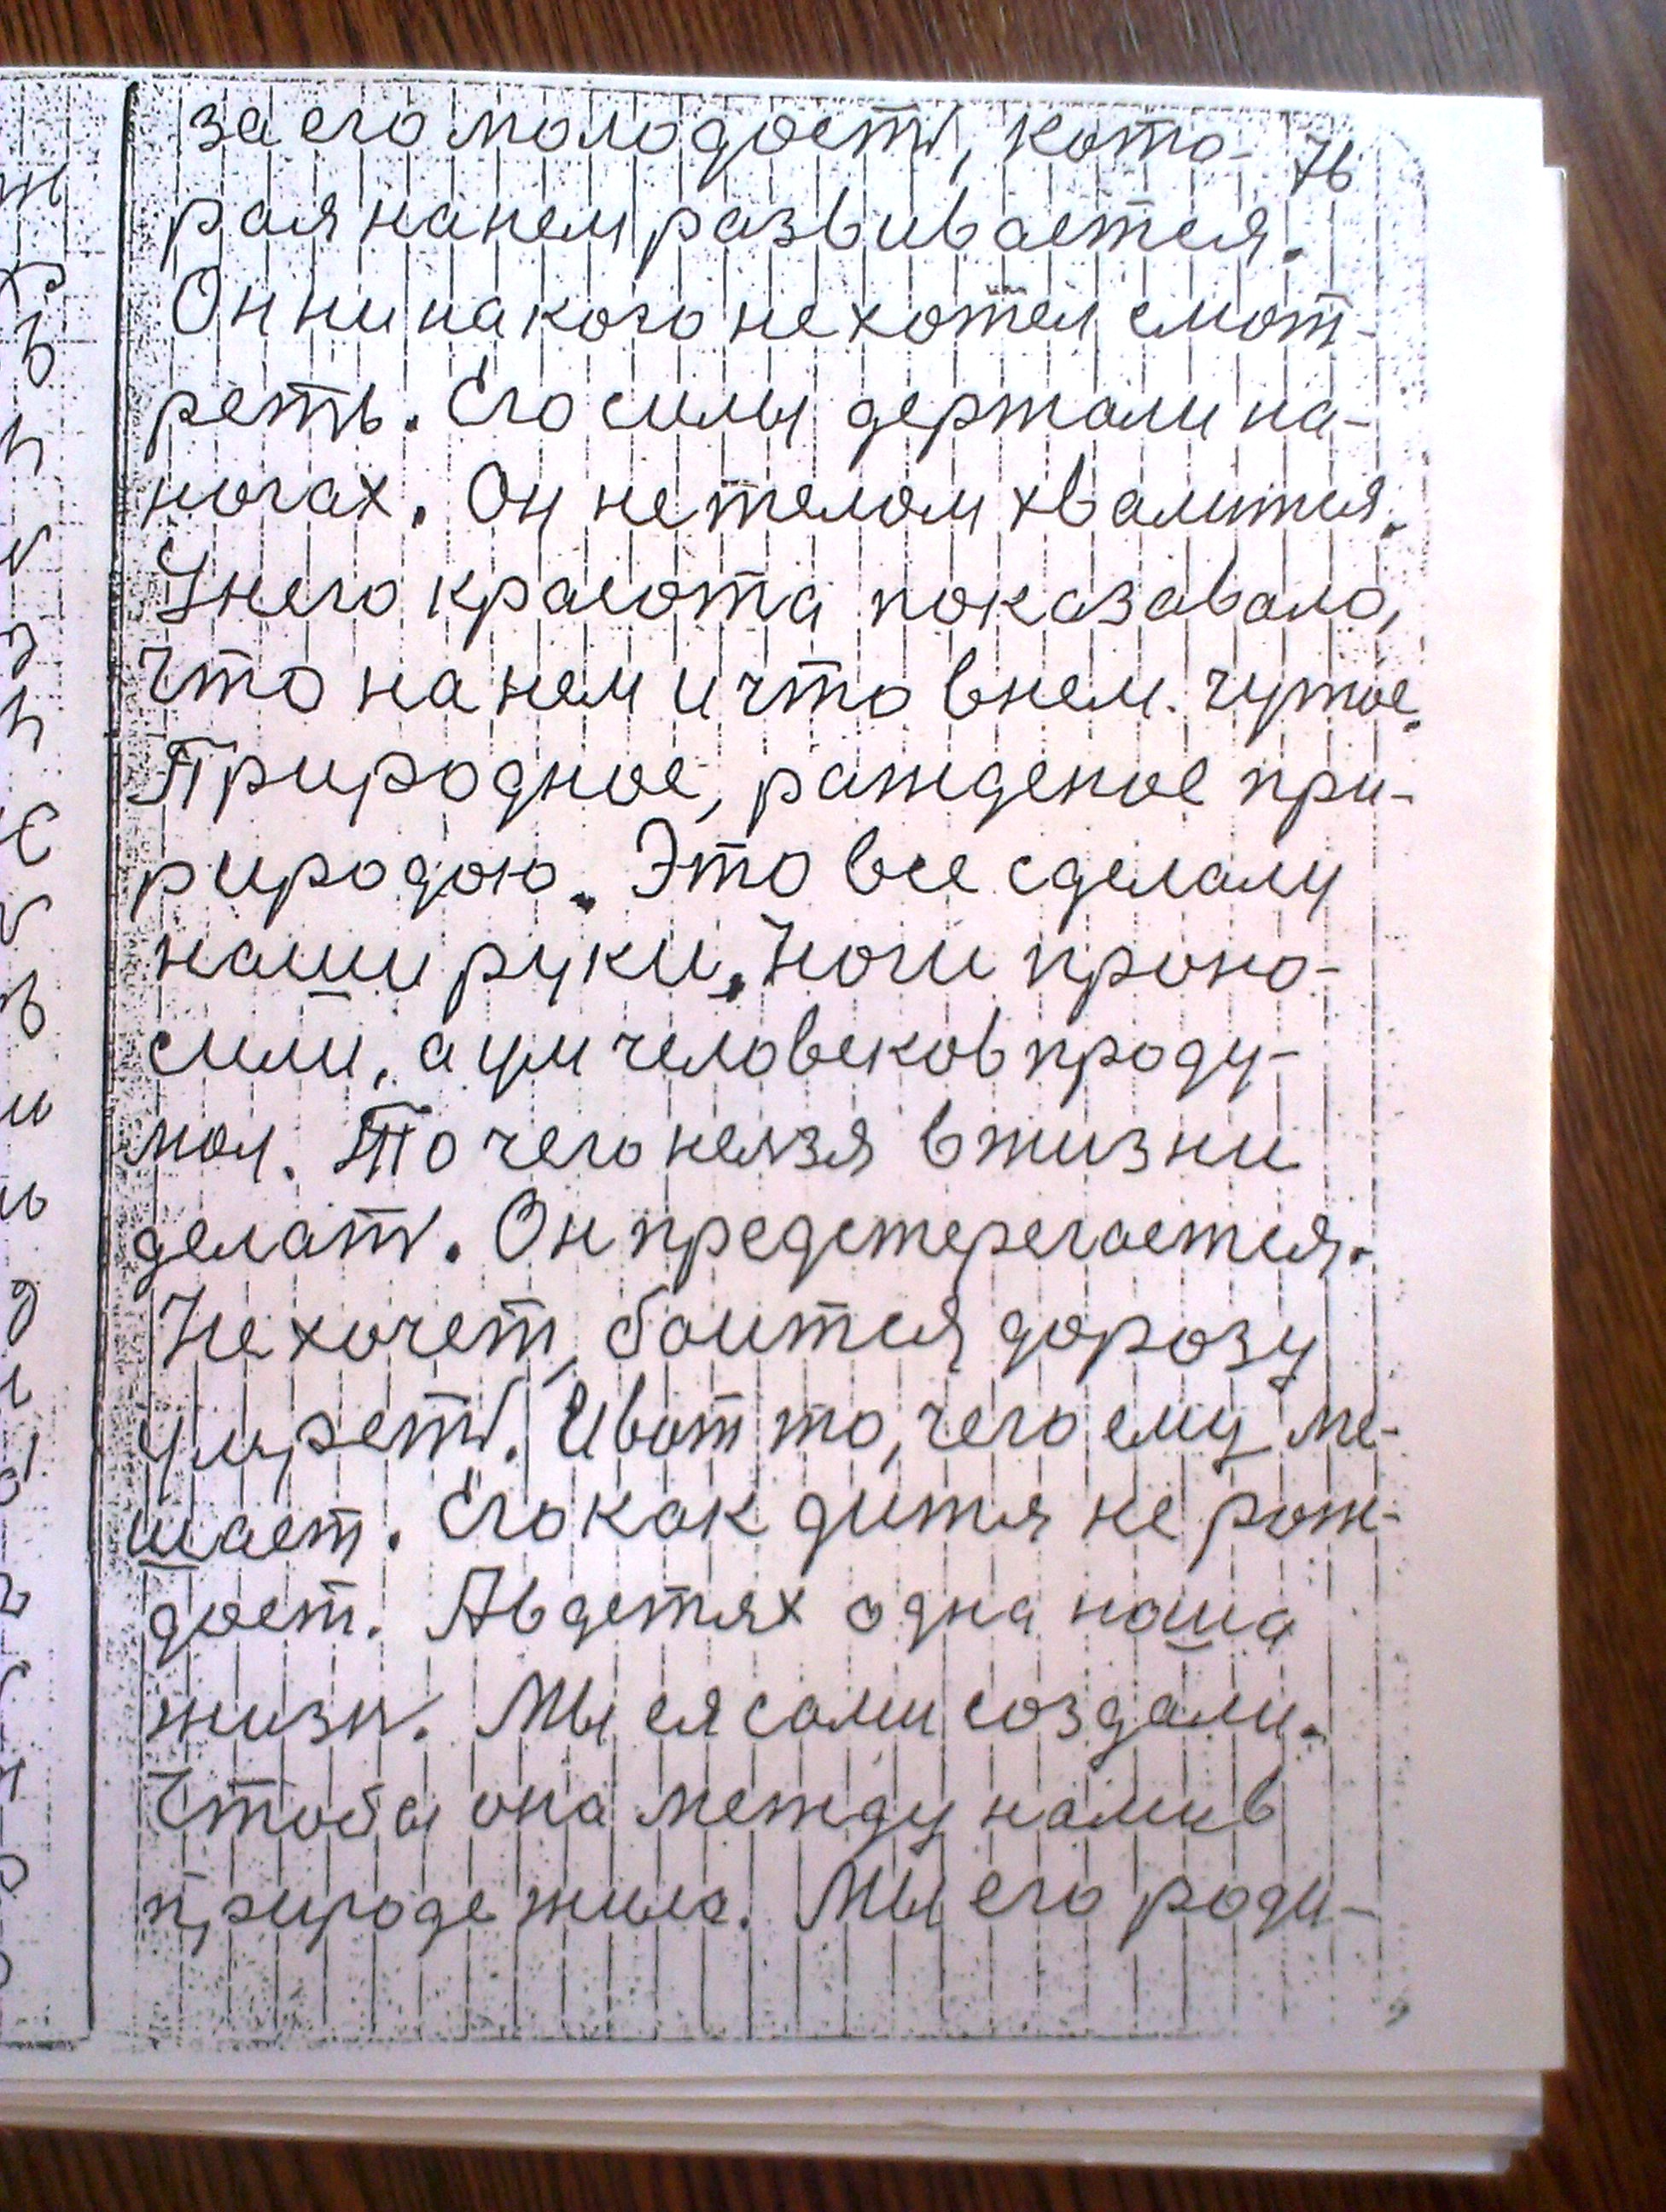 за его молодость, кото-
76
рая на нем развивается.
Он ни на кого не хотел смот-
реть. Его силы держали на-
ногах. Он не телом хвалится.
У него красота показавала,
что на нем и что в нем. чутое.
Природное, ражденое при-
риродою. Это все сделали
наши руки, Ноги проно-
сили, а ум человеков проду-
мал. То чего нелзя в жизни
делать. Он предстерегается.
Не хочет, боится дорозу
умреть. И вот то, чего ему ме-
шает. Его как дитя не рож-
дает. А в детях одна наша
жизнь. Мы ея сами создали.
Чтобы она между нами в
природе жила. Мы его роди-